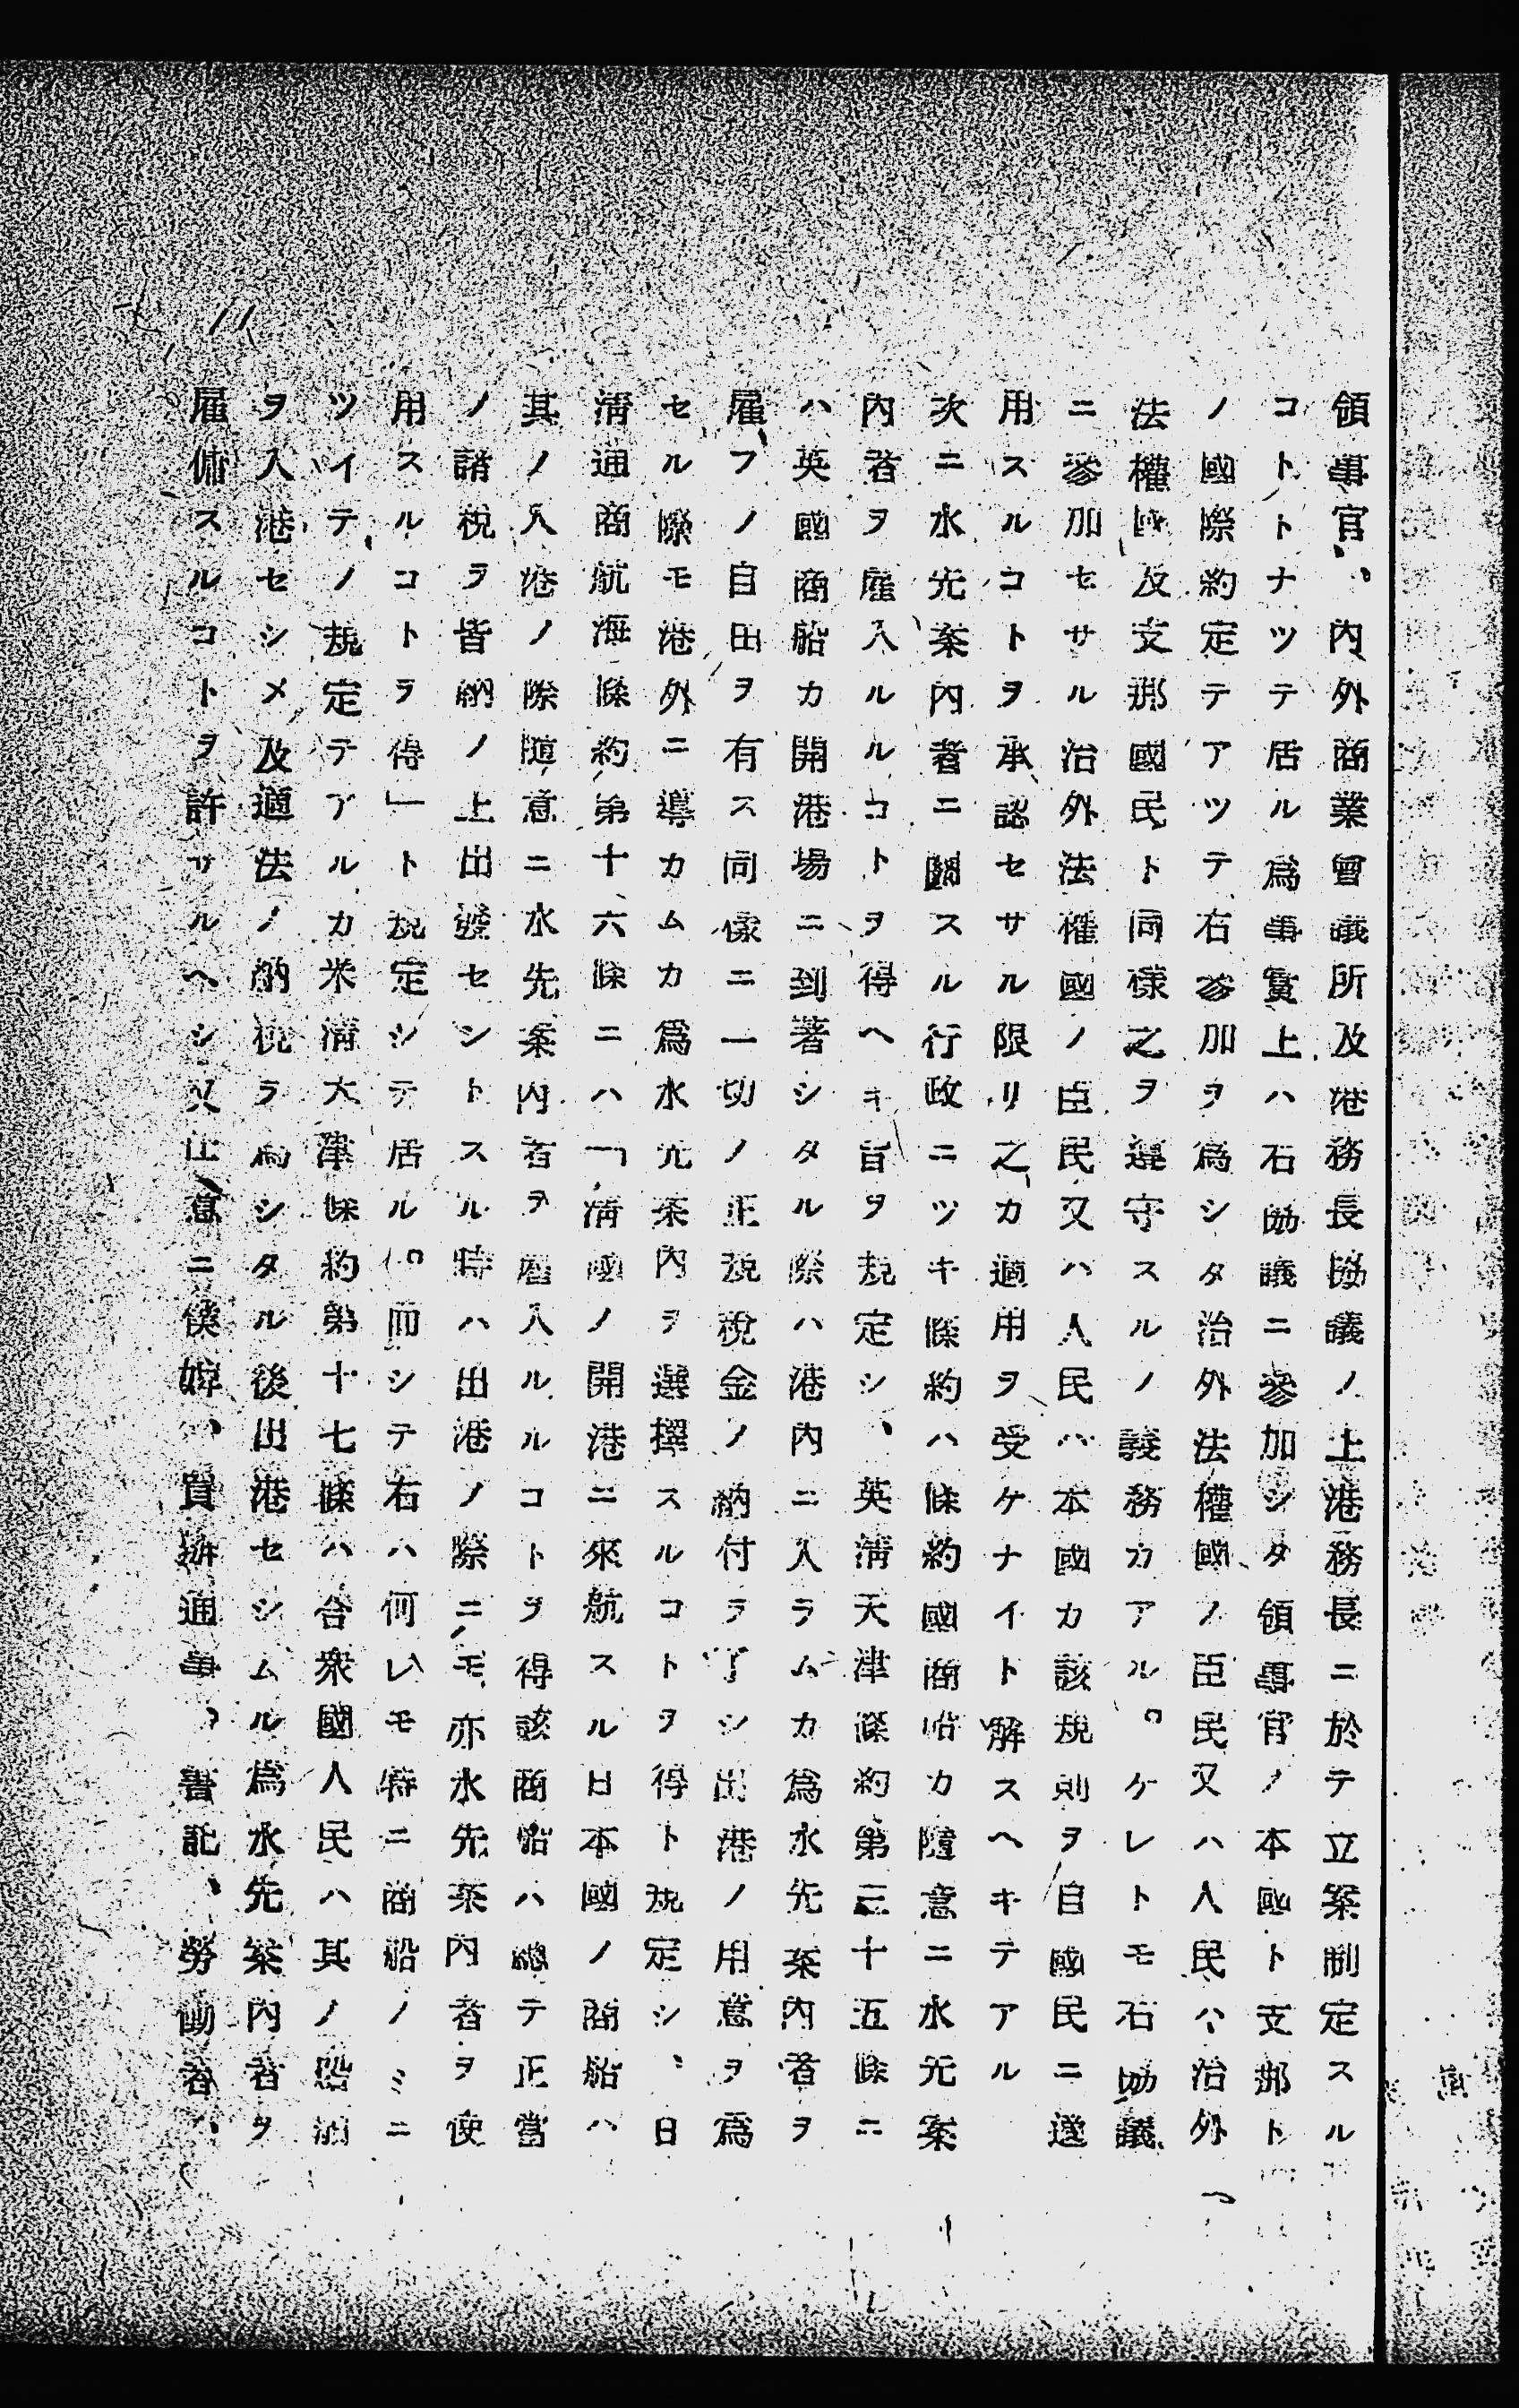 領事官、內外商業會議所及港務長協議ノ上港務長ニ於テ立案制定スル
コトトナツテ居ル爲事實上ハ右協議ニ參加シタ領事官ノ本國ト支那ト
ノ國際約定テアツテ右參加ヲ爲シタ治外法權國ノ臣民又ハ人民ハ治外
法權國及支那國民ト同樣之ヲ遵守スルノ義務カアル。ケレトモ右協議
ニ參加セサル治外法權國ノ臣民又ハ人民ハ本國カ該規則ヲ自國民ニ遵
用スルコトヲ承認セサル限リ之カ適用ヲ受ケナイト解スヘキテアル
次ニ水先案內者ニ關スル行政ニツキ條約ハ條約國商船カ隨意ニ水先案
內者ヲ雇入ルルコトヲ得ヘキ旨ヲ規定シ、英淸天津條約第三十五條ニ
ハ英國商船カ開港場ニ到著シタル際ハ港內ニ入ラムカ爲水先案內者ヲ
雇フノ自由ヲ有ス同樣ニ一切ノ正規稅金ノ納付ヲ了シ出港ノ用意ヲ爲
セル際モ港外ニ導カムカ爲水先案內ヲ選擇スルコトヲ得ト規定シ、日
淸通商航海條約第十六條ニハ「淸國ノ開港ニ來航スル日本國ノ商船ハ
其ノ入港ノ際隨意ニ水先案內者ヲ雇入ルルコトヲ得該商船ハ總テ正當
ノ諸稅ヲ皆納ノ上出發セントスル時ハ出港ノ際ニモ亦水先案內者ヲ使
用スルコトヲ得」ト規定シテ居ル。而シテ右ハ何レモ特ニ商船ノミニ
ツイテノ規定テアルカ米淸天津條約第十七條ハ合衆國人民ハ其ノ船舶
ヲ入港セシメ及適法ノ納稅ヲ爲シタル後出港セシムル爲水先案內者ヲ
雇傭スルコトヲ許サルヘシ又任意ニ僕婢、買辦通事、書記、勞働者、